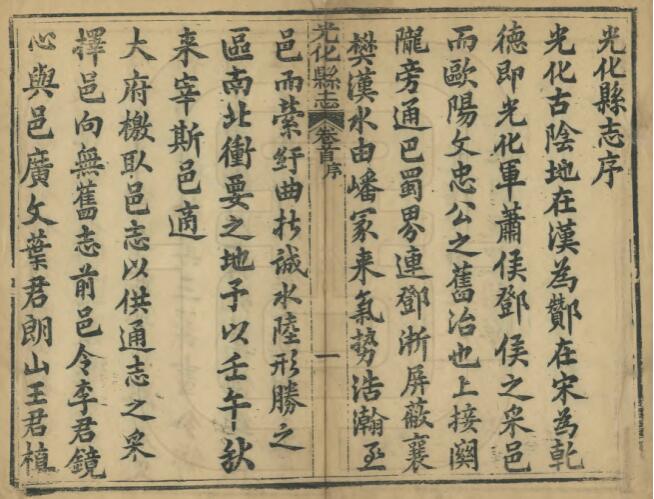 光化縣志序
光化古陰地在漢為酇在宋為乾
德即光化軍蕭侯鄧侯之采邑
而歐陽文忠公之舊治也上接關
隴旁通巴蜀界連鄧淅屏蔽襄
樊漢水由嶓冢来氣勢浩瀚至
光化縣志
卷首序
一
邑而縈紆曲折誠水陸形勝之
區南北衝要之地予以壬午秋
来宰斯邑適
大府檄取邑志以供通志之采
擇邑向無舊志前邑令李君鏡
心與邑廣文葉君朗山王君植